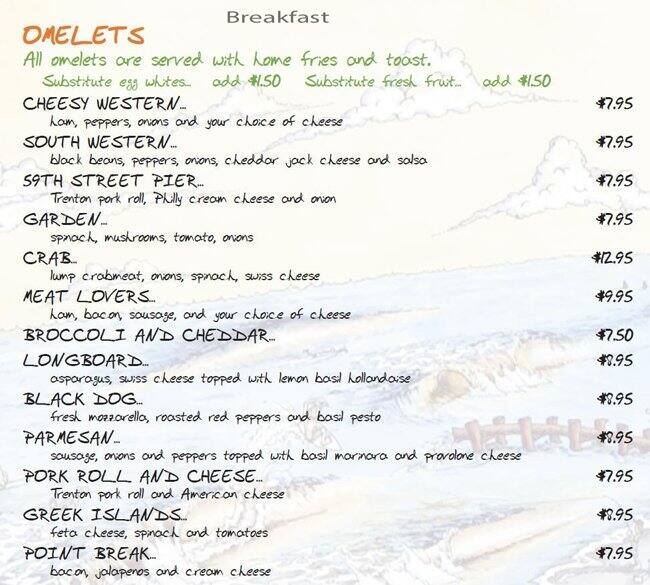 Breakfast
OMELETS
All omelets are served with home fries and toast.
Substitute egg whites... add $1.50 Substitute fresh fruit... add $1.50
CHEESY WESTERN... $7.95
ham, peppers, onions and your choice of cheese
SOUTH WESTERN... $7.95
black beans, peppers, onions, cheddar jack cheese and salsa
59TH STREET PIER... $7.95
Trenton pork roll, Philly cream cheese and onion
GARDEN... $7.95
spinach, mushrooms, tomato, onions
CRAB... $12.95
lump crabmeat, onions, spinach, swiss cheese
MEAT LOVERS... $9.95
ham, bacon, sausage, and your choice of cheese
BROCCOLI AND CHEDDAR... $7.50
LONGBOARD... $8.95
asparagus, swiss cheese topped with lemon basil hollandaise
BLACK DOG... $8.95
fresh mozzarella, roasted red peppers and basil pesto
PARMESAN... $8.95
sausage, onions and peppers topped with basil marinara and provolone cheese
PORK ROLL AND CHEESE... $7.95
Trenton pork roll and American cheese
GREEK ISLANDS... $8.95
feta cheese, spinach and tomatoes
POINT BREAK... $7.95
bacon, jalapenos and cream cheese